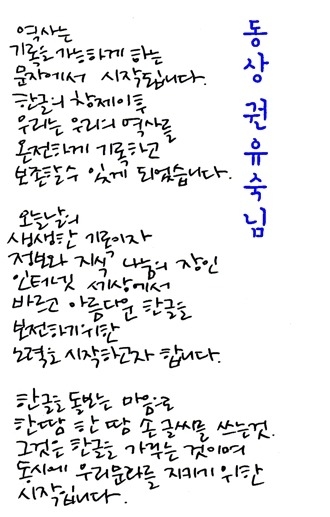 역사는
기록을 가능하게 하는
문자에서 시작됩니다.
한글의 창제이후
우리는 우리의 역사를
온전하게 기록하고
보존할수 있게 되었습니다.
오늘날의
생생한 기록이자
정보와 지식 나눔의 장인
인터넷 세상에서
바르고 아름다운 한글을
보전하기위한
노력을 시작하고자 합니다.
한글을 돌보는 마음으로
한땀 한땀 손글씨를 쓰는것.
그것은 한글을 가꾸는 것이며
동시에 우리문화를 지키기 위한
시작입니다.
동상 권유숙님